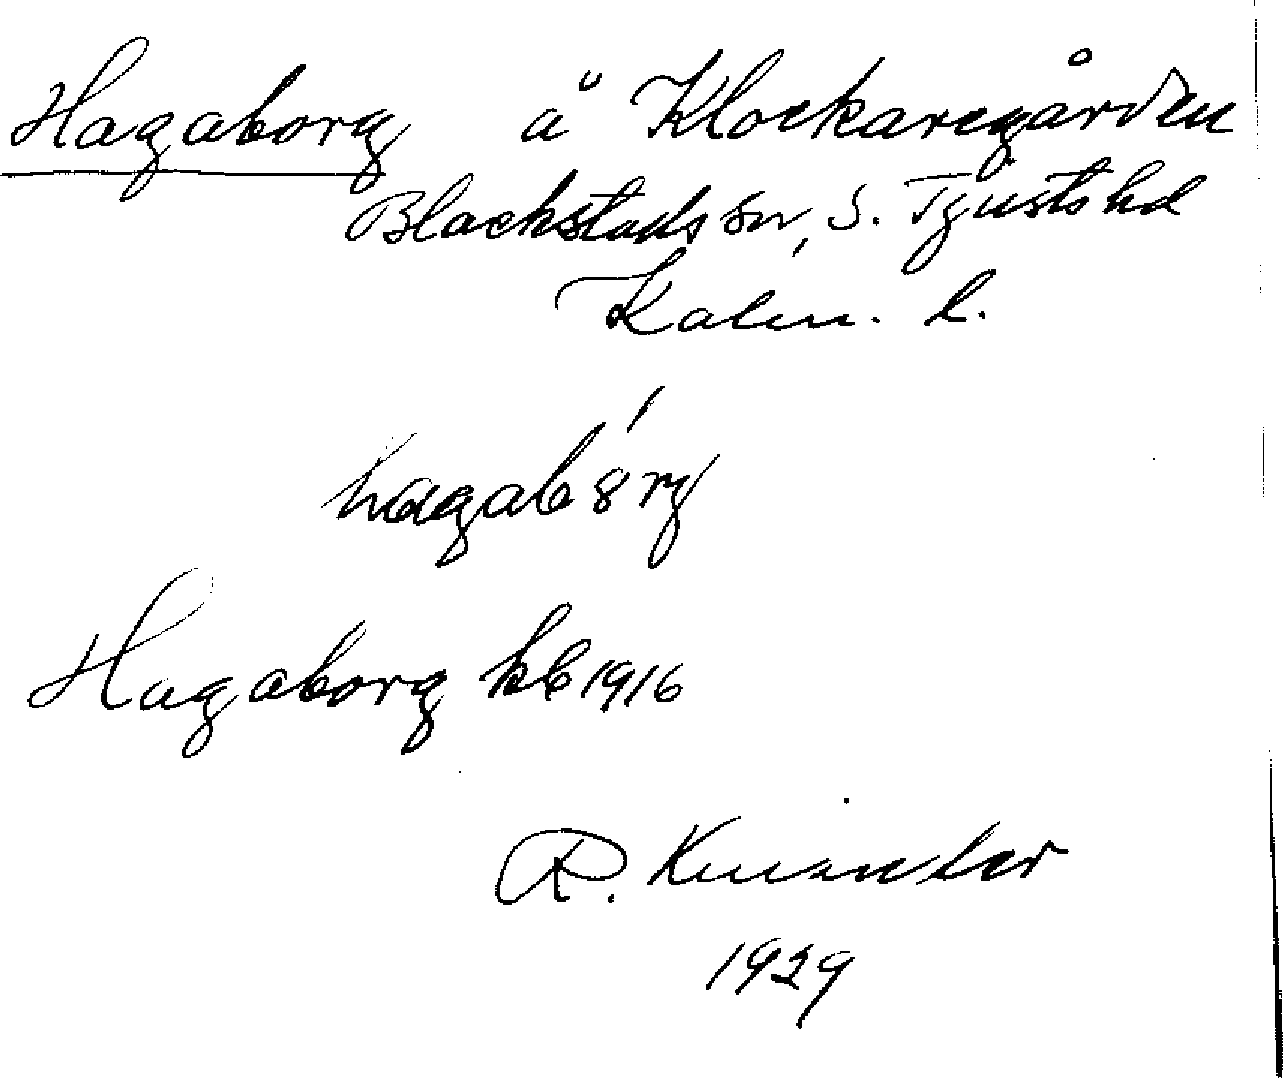 Hagaborg å Klockaregården
Blackstads sn, S. Tjusts hd
Kalm. l.
hagabȣrg
Hagaborg kb 1916
R.
1929